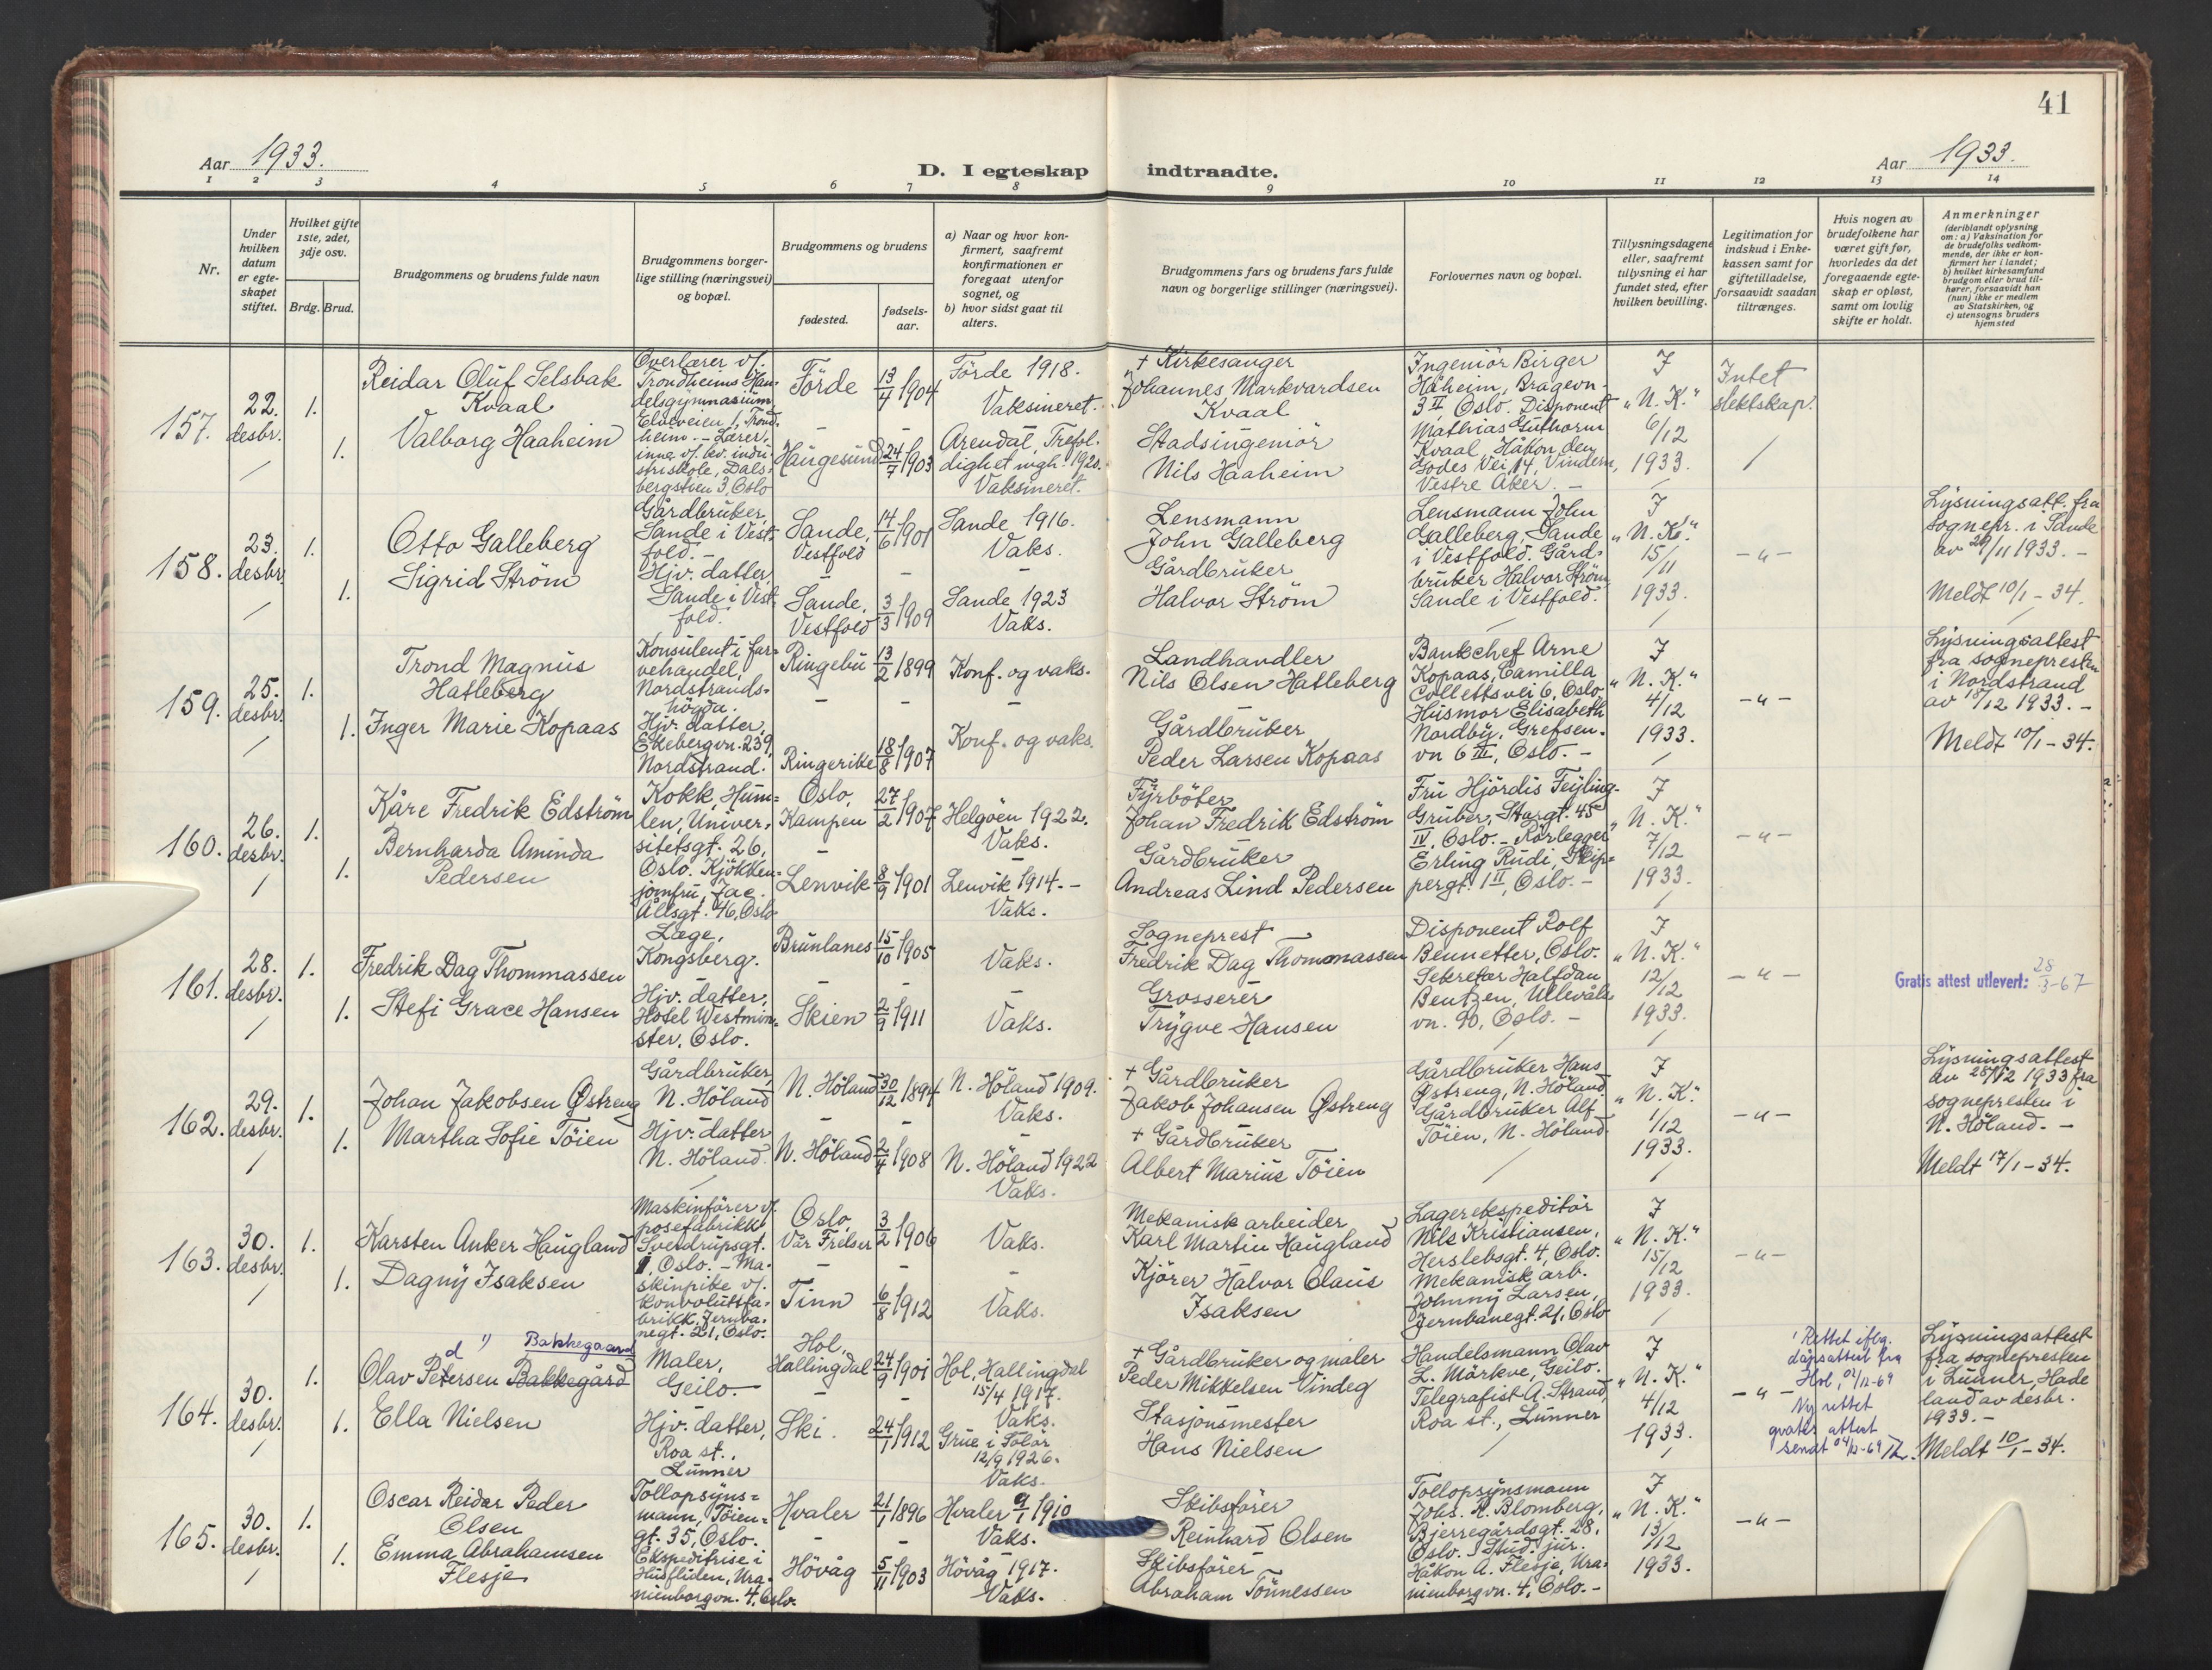 41
Aar 1933.
D. I egteskap indtraadte.
Aar 1933.
1 2 3 4 5 6 7 8 9 10 11 12 13 14
Nr.
Under hvilken datum er egteskapet stiftet.
Hvilket gifte 1ste, 2det, 3dje osv.
Brdg. Brud.
Brudgommens og brudens fulde navn
Brudgommens borgerlige stilling (næringsvei) og bopæl.
Brudgommens og brudens
fødested.
fødselsaar.
a) Naar og hvor konfirmert, saafremt konfirmationen er foregaat utenfor sognet, og
b) hvor sidst gaat til alters.
Brudgommens fars og brudens fars fulde navn og borgerlige stillinger (næringsvei).
Forlovernes navn og bopæl.
Tillysningsdagene eller, saafremt tillysning ei har fundet sted, efter hvilken bevilling.
Legitimation for indskud i Enkekassen samt for giftetilladelse, forsaavidt saadan tiltrænges.
Hvis nogen av brudefolkene har været gift før, hvorledes da det foregaaende egteskap er opløst, samt om lovlig skifte er holdt.
Anmerkninger (deriblandt oplysning om: a) Vaksination for de brudefolks vedkommende, der ikke er konfirmert her i landet; b) hvilket kirkesamfund brudgom eller brud tilhører, forsaavidt han (hun) ikke er medlem av Statskirken, og c) utensogns bruders hjemsted
157.
22. desbr.
1.
Reidar Oluf Selsbak
Kvaal
1.
Valborg Haaheim
Overlærer v/.
Trondheims Han=
delsgymnasium,
Elveveien 1, Trond=
heim. - Lærer=
inne v/. kv. indu=
striskole, Dals=
bergstien 3, Oslo
Förde 13/7 1904
Haugesund 24/7 1903
Förde 1918.
Vaksineret.
Arendal, Trefol=
dighet mgh. 1920.
Vaksineret.
+ Kirkesanger
Johannes Markvardsen
Kvaal
Stadsingeniör
Nils Haaheim
Ingeniör Birger
Haheim, Bragevn.
3 II Oslo. Disponent
Mathias Guthorm
Kvaal, Håkon den
Godes Vei 14, Vindern,
Vestre Aker. -
I
"N. K."
6/12
1933.
Intet
slektskap.
158.
23. desbr.
1.
Otto Galleberg
1.
Sigrid Ström
Gårdbruker,
Sande i Vest=
fold. -
Hjv. datter,
Sande i Vest=
fold.
Sande, Vestfold 14/6 1901
Sande, Vestfold 3/3 1909
Sande 1916.
Vaks.
Sande 1923
Vaks.
Lensmann
John Galleberg
Gårdbruker
Halvor Ström
Lensmann John
Galleberg, Sande
i Vestfold. Gård=
bruker Halvor Ström
Sande i Vestfold.
I
"N. K."
15/11
1933.
- " -
Lysningsatt. fra
sognepr. i Sande
av 29/11 1933. -
Meldt 10/1 - 34.
159.
25. desbr.
1.
Trond Magnus
Hatleberg
1.
Inger Marie Kopaas
Konsulent i far=
vehandel,
Nordstrands=
högda.
Hjv. datter,
Ekebergvn. 239,
Nordstrand.
Ringebu 13/2 1899
Ringerike 18/8 1907
Konf. og vaks.
Konf. og vaks.
Landhandler
Nils Olsen Hatleberg
Gårdbruker
Peder Larsen Kopaas
Bankchef Arne
Kopaas, Camilla
Collettsvei 6, Oslo.
Husmor Elisabeth
Nordby, Grefsen=
vn 6 III, Oslo. -
I
"N. K."
4/12
1933.
- " -
Lysningsattest
fra sognepresten
i Nordstrand
av 18/12 1933. -
Meldt 10/1 - 34.
160.
26. desbr.
1.
Kåre Fredrik Edström
1.
Bernharda Aminda
Pedersen
Kokk, Hum=
len, Univer=
sitetsgt. 26,
Oslo. Kjökken=
jomfru, Jac.
Allsgt. 46, Oslo
Oslo, Kampen 27/2 1907
Lenvik 8/9 1901
Helgöen 1922.
Vaks.
Lenvik 1914. -
Vaks.
Fyrböter
Johan Fredrik Edström
Gårdbruker
Andreas Lind Pedersen
Fru Hjördis Feyling-
Gruber, Storgt. 45
IV, Oslo. - Rörlegger
Erling Rudi, Skip=
pergt. 1 II, Oslo. -
I
"N. K."
7/12
1933.
- " -
161.
28. desbr.
1.
Fredrik Dag Thommassen
1.
Stefi Grace Hansen
Læge,
Kongsberg.
Hjv. datter,
Hotel Westmin=
ster, Oslo.
Brunlanes 15/10 1905
Skien 2/9 1911
Vaks.
Vaks.
Sogneprest
Fredrik Dag Thommassen
Grosserer
Trygve Hansen
Disponent Rolf
Bennetter, Oslo.
Sekretær Halfdan
Bentzen, Ullevåls
vn. 90, Oslo. -
I
"N. K."
12/12
1933.
- " -
Gratis attest utlevert: 28/3-67
162.
29. desbr.
1.
Johan Jakobsen Østreng
1.
Martha Sofie Töien
Gårdbruker,
N. Höland
Hjv. datter
N. Höland.
N. Höland 30/12 1894
N. Höland 2/4 1908
N. Höland 1909.
Vaks.
N. Höland 1922
Vaks.
+ Gårdbruker
Jakob Johansen Østreng
+ Gårdbruker
Albert Marius Töien
Gårdbruker Hans
Østreng, N. Höland.
Gårdbruker Alf
Töien, N. Höland.
I
"N. K."
1/12
1933.
- " -
Lysningsattest
av 28/12 1933 fra
sognepresten i
N. Höland. -
Meldt 17/1 - 34.
163.
30. desbr.
1.
Karsten Anker Haugland
1.
Dagny Isaksen
Maskinförer v/.
posefabrikk
Sverdrupsgt.
1, Oslo. - Ma=
skinpike v/.
konvoluttfa=
brikk, Jernba=
negt. 21, Oslo.
Oslo, Vår Frelser 3/2 1906
Tinn 6/8 1912
Vaks.
Vaks.
Mekanisk arbeider
Karl Martin Haugland
Kjörer Halvor Claus
Isaksen
Lagerekspeditör
Nils Kristiansen,
Herslebsgt. 4, Oslo.
Mekanisk arb.
Johnny Larsen,
Jernbanegt. 21, Oslo
I
"N. K."
15/12
1933.
- " -
164.
30. desbr.
1.
d 1) Bakkegaard
Olav Petersen Bakkegård
1.
Ella Nielsen
Maler,
Geilo.
Hjv. datter,
Roa st.,
Lunner
Hol, Hallingdal 24/9 1901
Ski. 24/1 1912
Hol, Hallingdal
15/4 1917.
Vaks.
Grue i Solör
12/9 1926.
Vaks.
+ Gårdbruker og maler
Peder Mikkelsen Vindeg
Stasjonsmester
Hans Nielsen
Handelsmann Olav
L. Mörkve, Geilo.
Telegrafist A. Strand,
Roa st., Lunner
I
"N. K."
4/12
1933.
- " -
1 Rettet iflg.
dåpsattest fra
Hol, 04/12-69
Ny rettet
gratis attest
sendt 04/12-69
Lysningsattest
fra sognepresten
i Lunner, Hade
land av desbr.
1933. -
Meldt 10/1 - 34.
165.
30. desbr.
1.
Oscar Reidar Peder
Olsen
1.
Emma Abrahamsen
Flesje
Tollopsyns=
mann, Töien=
gt. 35, Oslo.
Ekspeditrise i
Husfliden, Ura=
nienborgvn. 4, Oslo.
Hvaler 21/1 1896
Hövåg 5/11 1903
Hvaler 9/1 1910
Vaks.
Hövåg 1917.
Vaks.
Skibsförer
Reinhard Olsen
Skibsförer
Abraham Tönnessen
Tollopsynsmann
Johs. R. Blomberg,
Bjerregårdsgt. 28,
Oslo. Stud. jur.
Håkon A. Flesje, Ura=
nienborgvn. 4, Oslo. -
I
"N. K."
13/12
1933.
- " -